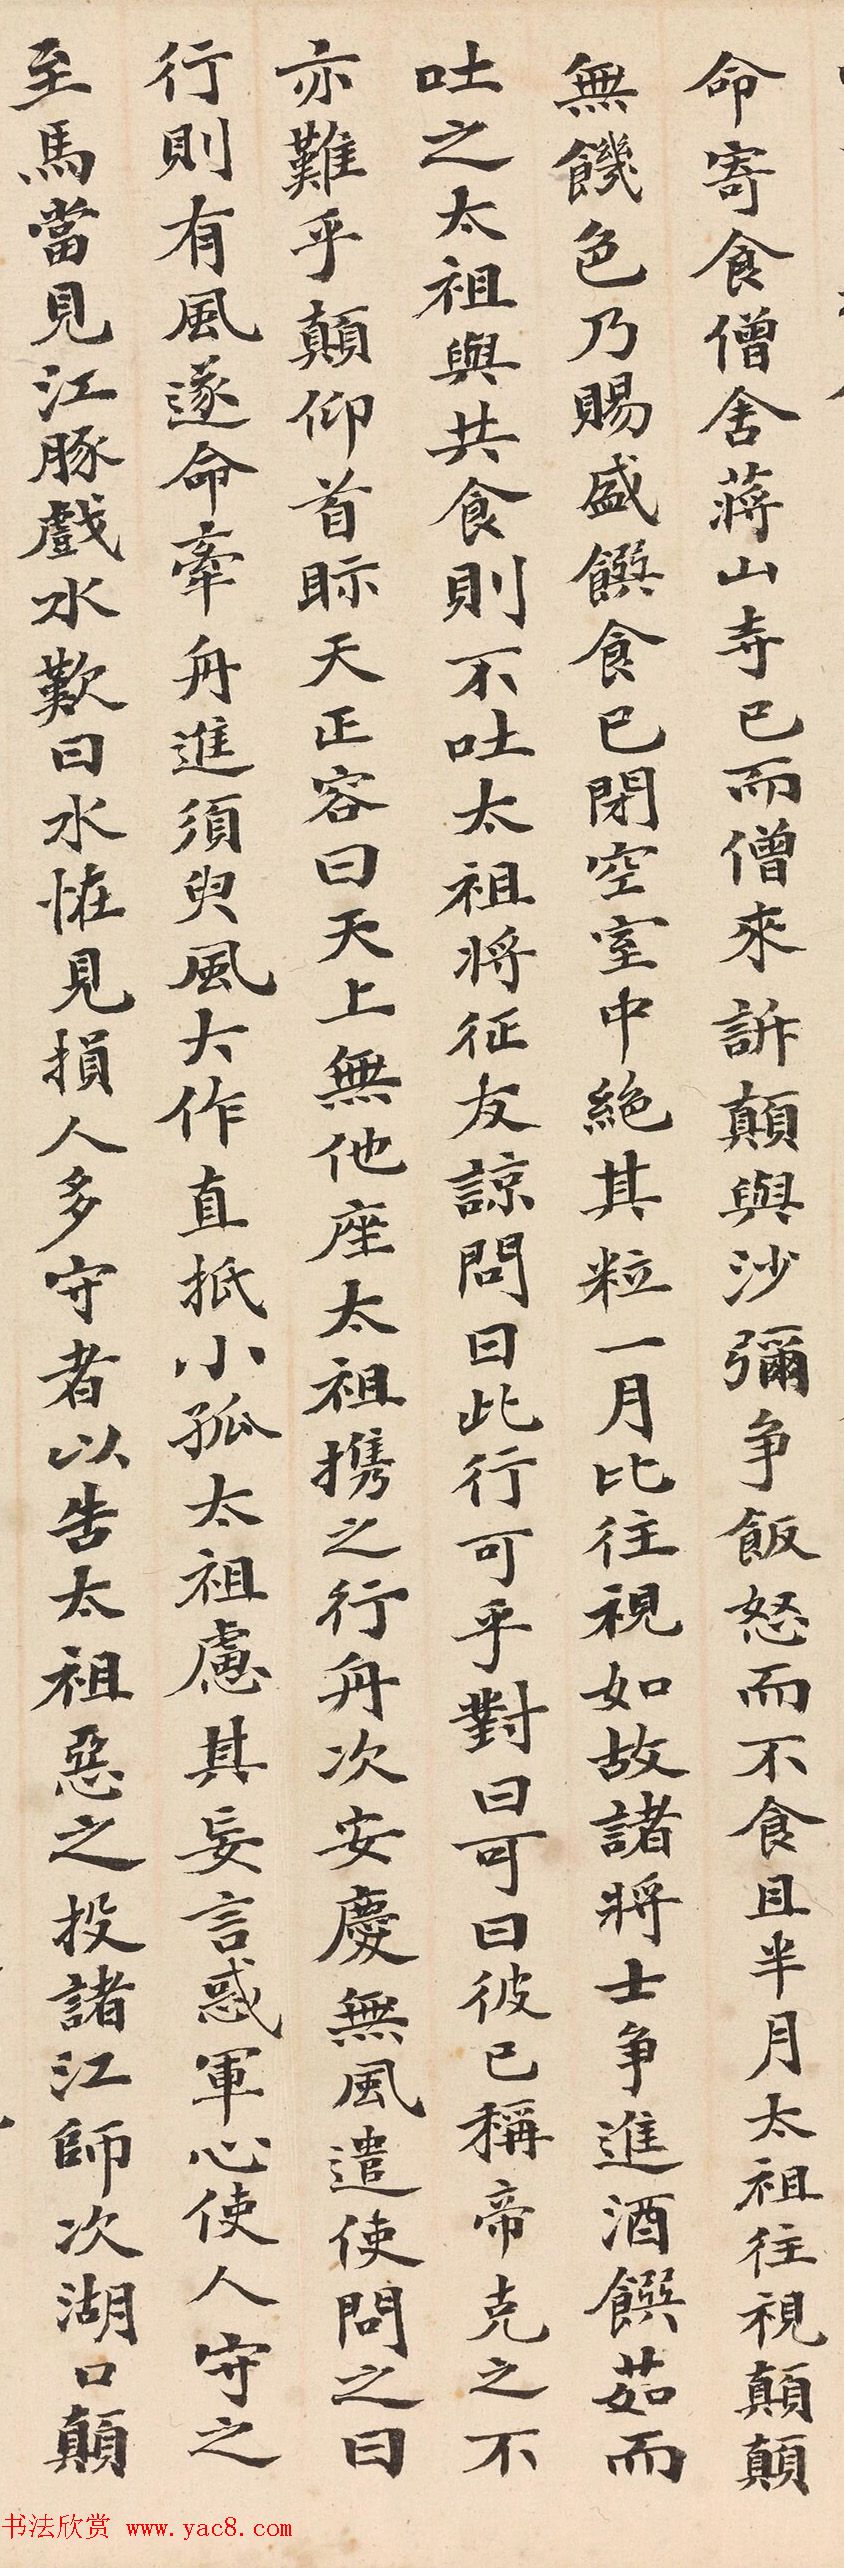 命寄食僧舍蔣山寺已而僧來訴顛與沙彌争飯怒而不食且半月太祖往視顛顛
無饑色乃賜盛饌食已閉空室中絕其粒一月比往視如故諸將士争進酒饌茹而
吐之太祖與共食則不吐太祖將征友諒問曰此行可乎對曰可曰彼已稱帝克之不
亦難乎顛仰首眎天正容曰天上無他座太祖携之行舟次安慶無風遣使問之曰
行則有風遂命牽舟進須臾風大作直抵小孤太祖慮其妄言惑軍心使人守之
至馬當見江豚戲水歎曰水恠見損人多守者以告太祖惡之投諸江師次湖口顛
书法欣赏 www.yac8.com